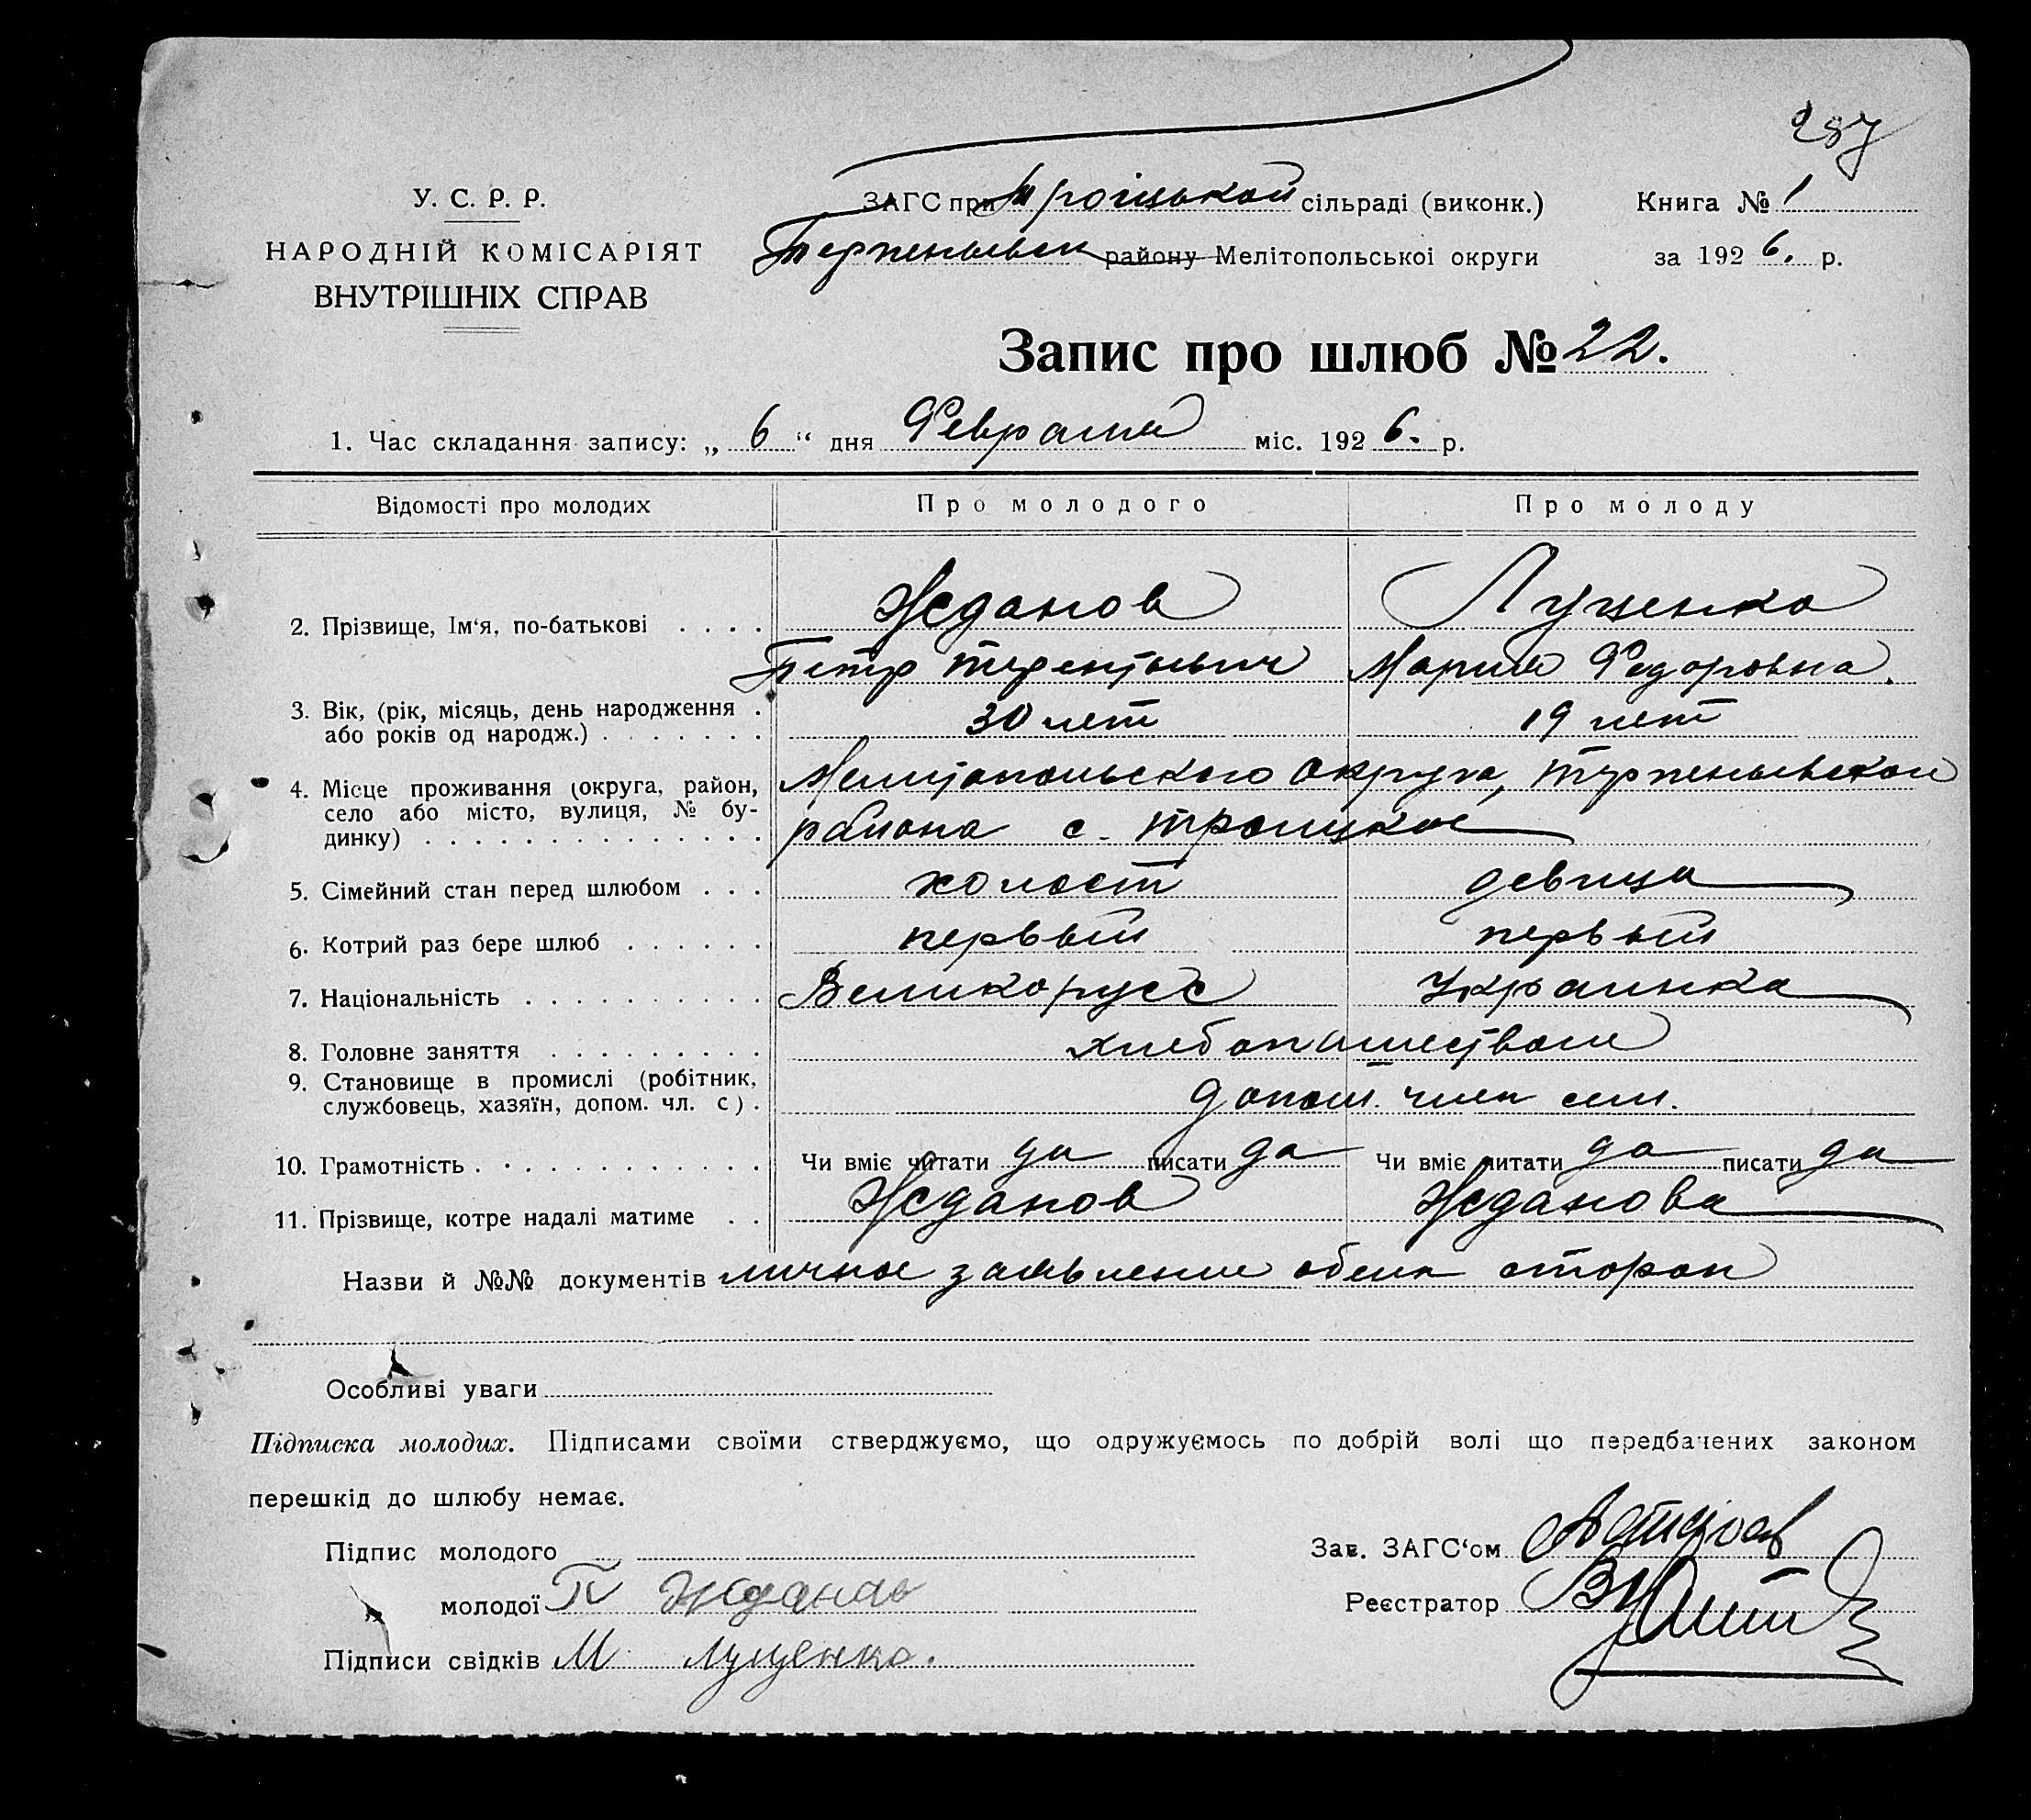 287
У. С. Р. Р.
НАРОДНІЙ КОМІСАРІЯТ
ВНУТРІШНІХ СПРАВ
ЗАГС при Троіцькой сільраді (виконк.)
Терпеньевск району Мелітопольської округи
Книга № 1
за 1926. р.
Запис про шлюб № 22.
1. Час складання запису: „ 6 “ дня Февраля міс. 1926. р.
Відомості про молодих Про молодого Про молоду
2. Прізвище, Ім‘я, по-батькові . . . . Жданов Луценко
Петр Терентьевич Мария Федоровна.
3. Вік, (рік, місяць, день народження . 30 лет 19 лет
або років од народж.) . . . . . . .
4. Місце проживання (округа, район, Мелитопольского округа, Терпеньевской
село або місто, вулиця, № бу-
динку) . . . . . . . . . . . . . . района с. Троицкое
5. Сімейний стан перед шлюбом . . . холост девица
6. Котрий раз бере шлюб . . . . . . первый первый
7. Національність . . . . . . . . . . Великорусс Украинка
8. Головне заняття . . . . . . . . . хлебопашеством
9. Становище в промислі (робітник,
службовець, хазяїн, допом. чл. с) . допом. член сем.
10. Грамотність . . . . . . . . . . . . Чи вміє читати да писати да Чи вміє читати да писати да
11. Прізвище, котре надалі матиме . . Жданов Жданова
Назви й №№ документів личное заявление обеих сторон
Особливі уваги
Підписка молодих. Підписами своїми стверджуємо, що одружуємось по добрій волі що передбачених законом
перешкід до шлюбу немає.
Підпис молодого
„ молодої П Жданов
Підписи свідків М Луценко.
Зав. ЗАГС‘ом
Реєстратор